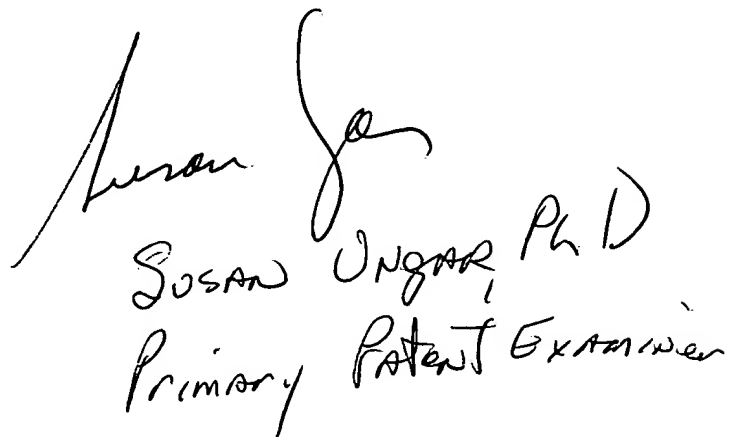 Susan
SUSAN UNGAR, Ph D
Primary Patent Examiner